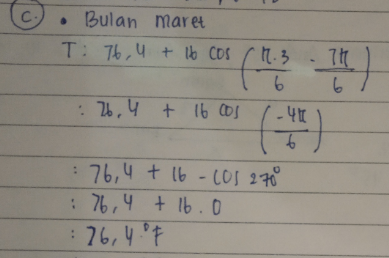 C. • Bulan maret
T : 76,4 + 16 cos (π.3/6 - 7π/6)
: 76,4 + 16 cos (-4π/6)
: 76,4 + 16 - cos 270°
: 76,4 + 16 . 0
: 76,4 °F